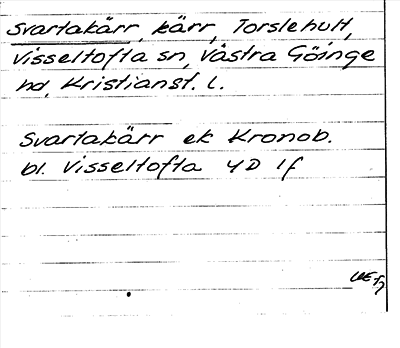 Svartakärr, kärr, Torslehult,
Visseltofta sn, Västra Göinge
hd, Kristianst. l.
Svartakärr ek Kronob.
bl. Visseltofta 4D 1f